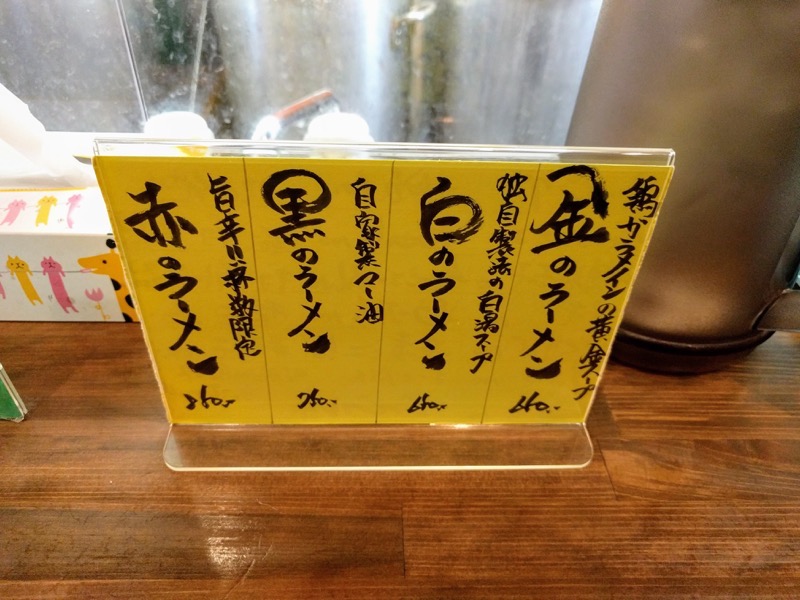 鶏ガラメインの黄金スープ
金のラーメン
660.-
独自製法の白湯スープ
白のラーメン
660.-
自家製マー油
黒のラーメン
760.-
旨辛!!数限定
赤のラーメン
860.-